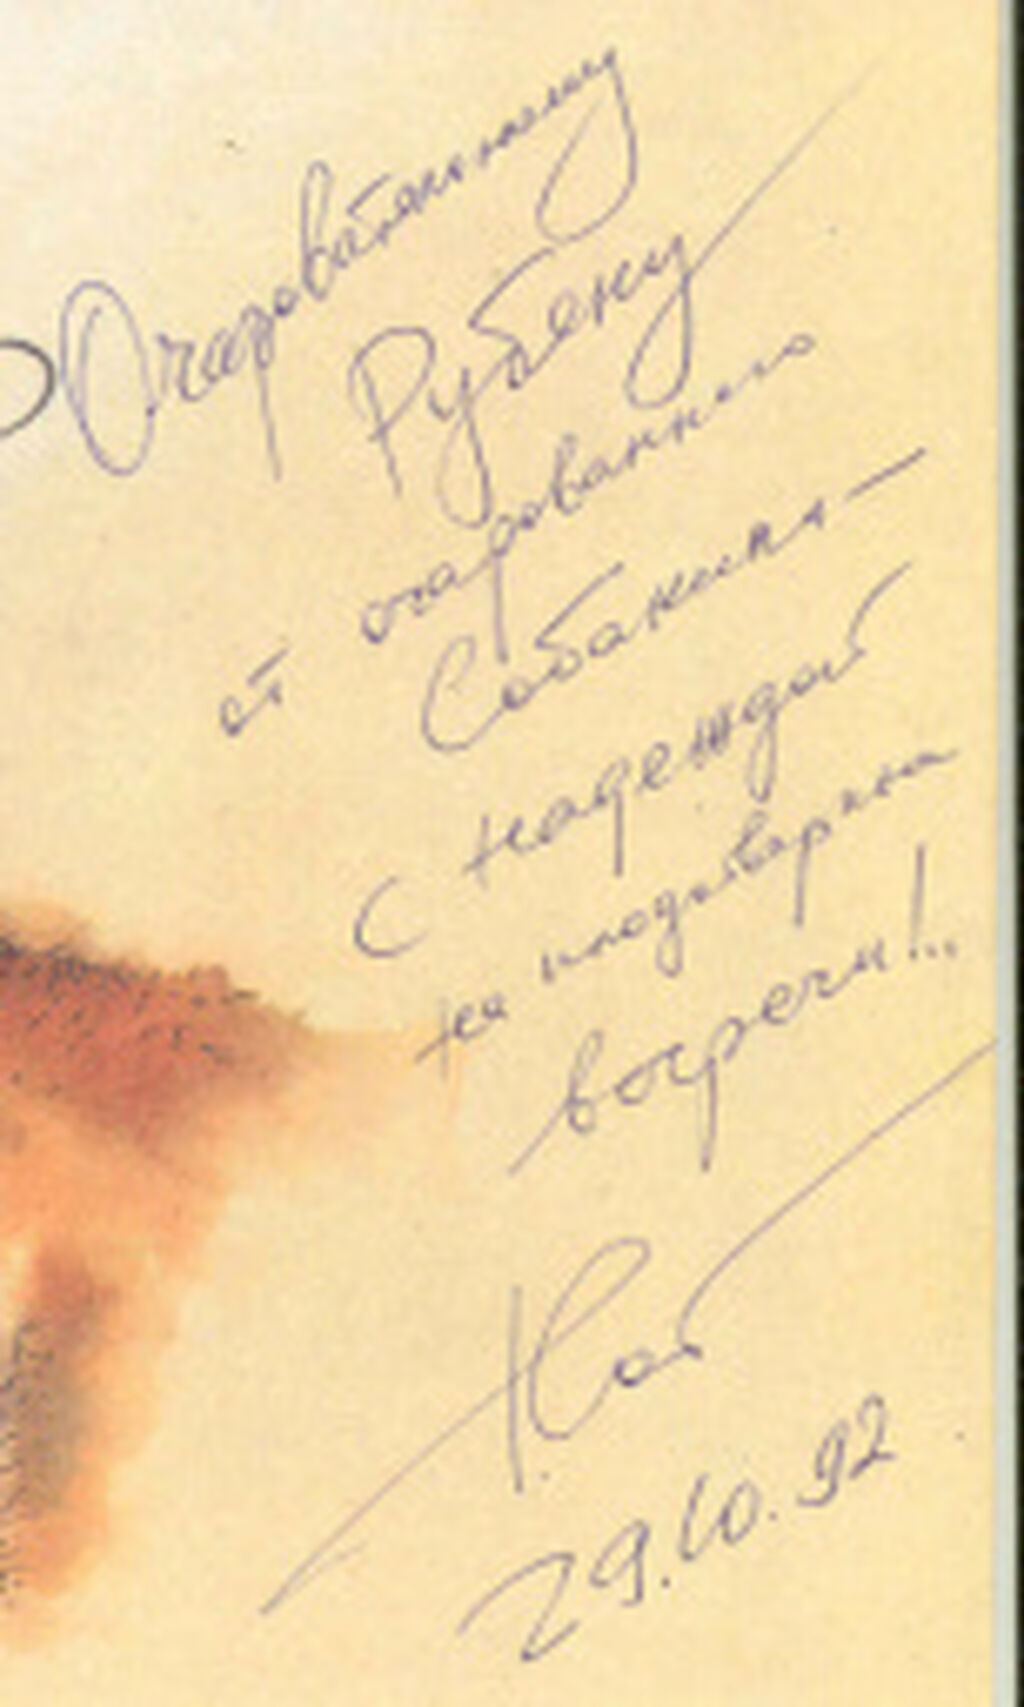 Очаровательному
Рубену
от очарованного
Собакина —
С надеждой
на плодотворные
встречи!..
29.10.92